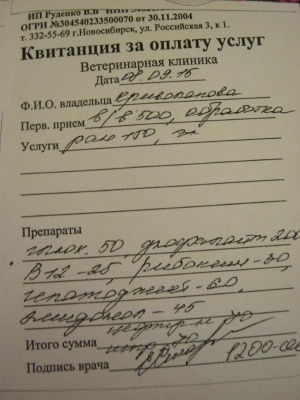 ИП Руденко В.В ИНН
ОГРН №304540233500070 от 30.11.2004
т. 332-55-69 г.Новосибирск, ул. Российская 3, к 1.
Квитанция за оплату услуг
Ветеринарная клиника
Дата 08.09.15
Ф.И.О. владельца
Перв. прием в/в 500, обработка
Услуги ран 150,
Препараты
глюк. 50
В12-25, рибоксин-30,
гепатоджект-60,
-45
Итого сумма 70
Подпись врача 1200-